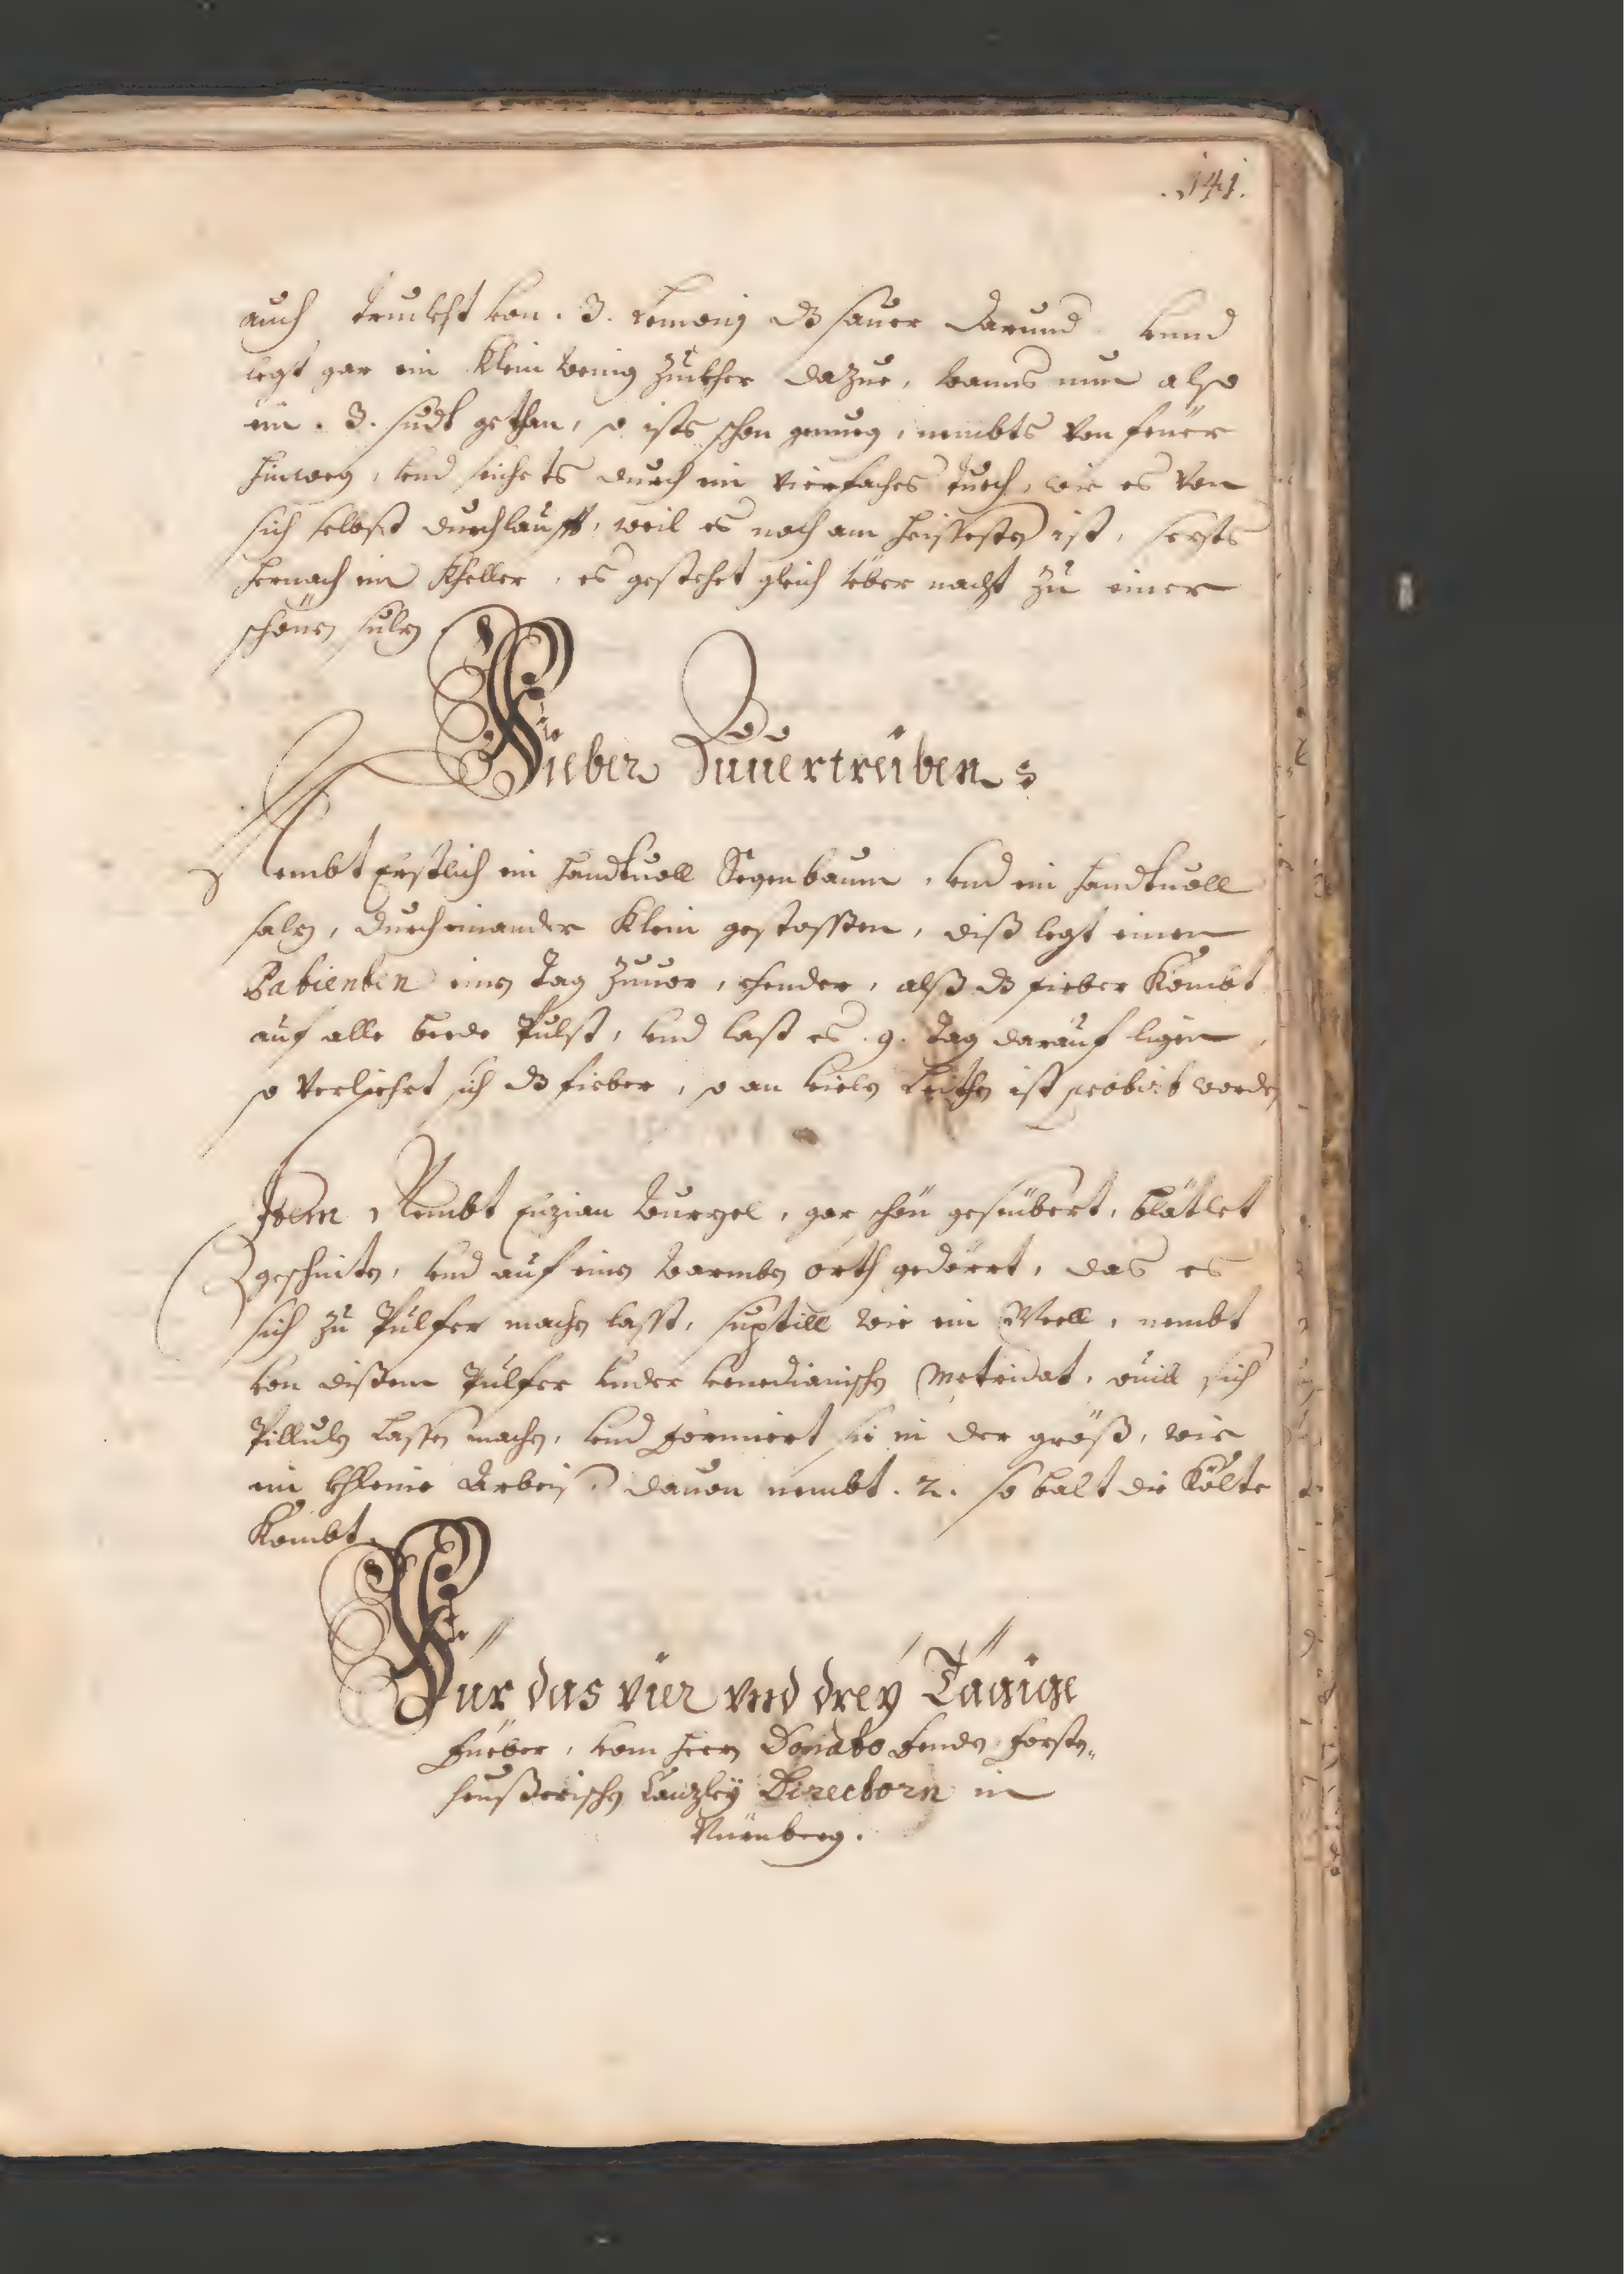 .141.
auch truckht von .3. Lemonj dz sauer darund vnnd
legt gar ein klein wenig Zuckher dazue, wanns nun also
ein .3. sudt gethan, so ists schon genueg, nembts von feüer
hinweg, vnd seichets durch ein vierfaches tuech, wie es von
sich selbst durchlaufft, weil es noch am heissesten ist, sezts
hernach in Kheller, es gestehet gleich über nacht zu einer
schönen sulz
Fieber Zuuertreiben
Nembt Erstlich ein handtuoll Segenbaum, vnd ein handtuoll
salz, durcheinander klein gestossen, diß legt einen
Patienten einen tag zuuor, ehender, alß dz fieber kombt
auf alle beede Pulst, vnd last es .9. tag darauf ligen,
so verliehrt sich dz fieber, so an vielen Leithen ist probirt worden
Item, Nembt Enzian wurzel, gar schön geseübert, blätlet
geschniten, vnd auf einen warmben orth gedörrt, das es
sich zu Pulfer machen lasst, suptill wie ein Meell, nembt
von dißem Pulfer vnder venedianischen Metridat, souill sich
Pillulen lassen machen, vnd formiert sie in der größ, wie
ein khleine Arbeis, dauon nembt .2. so balt die Költe
kombt.
Für das vier vnd dreÿ Tägige
Fueber, vom Herrn Donato Fenden, forsten-
heußerischen Canzleÿ Directorn in
Nürnberg.